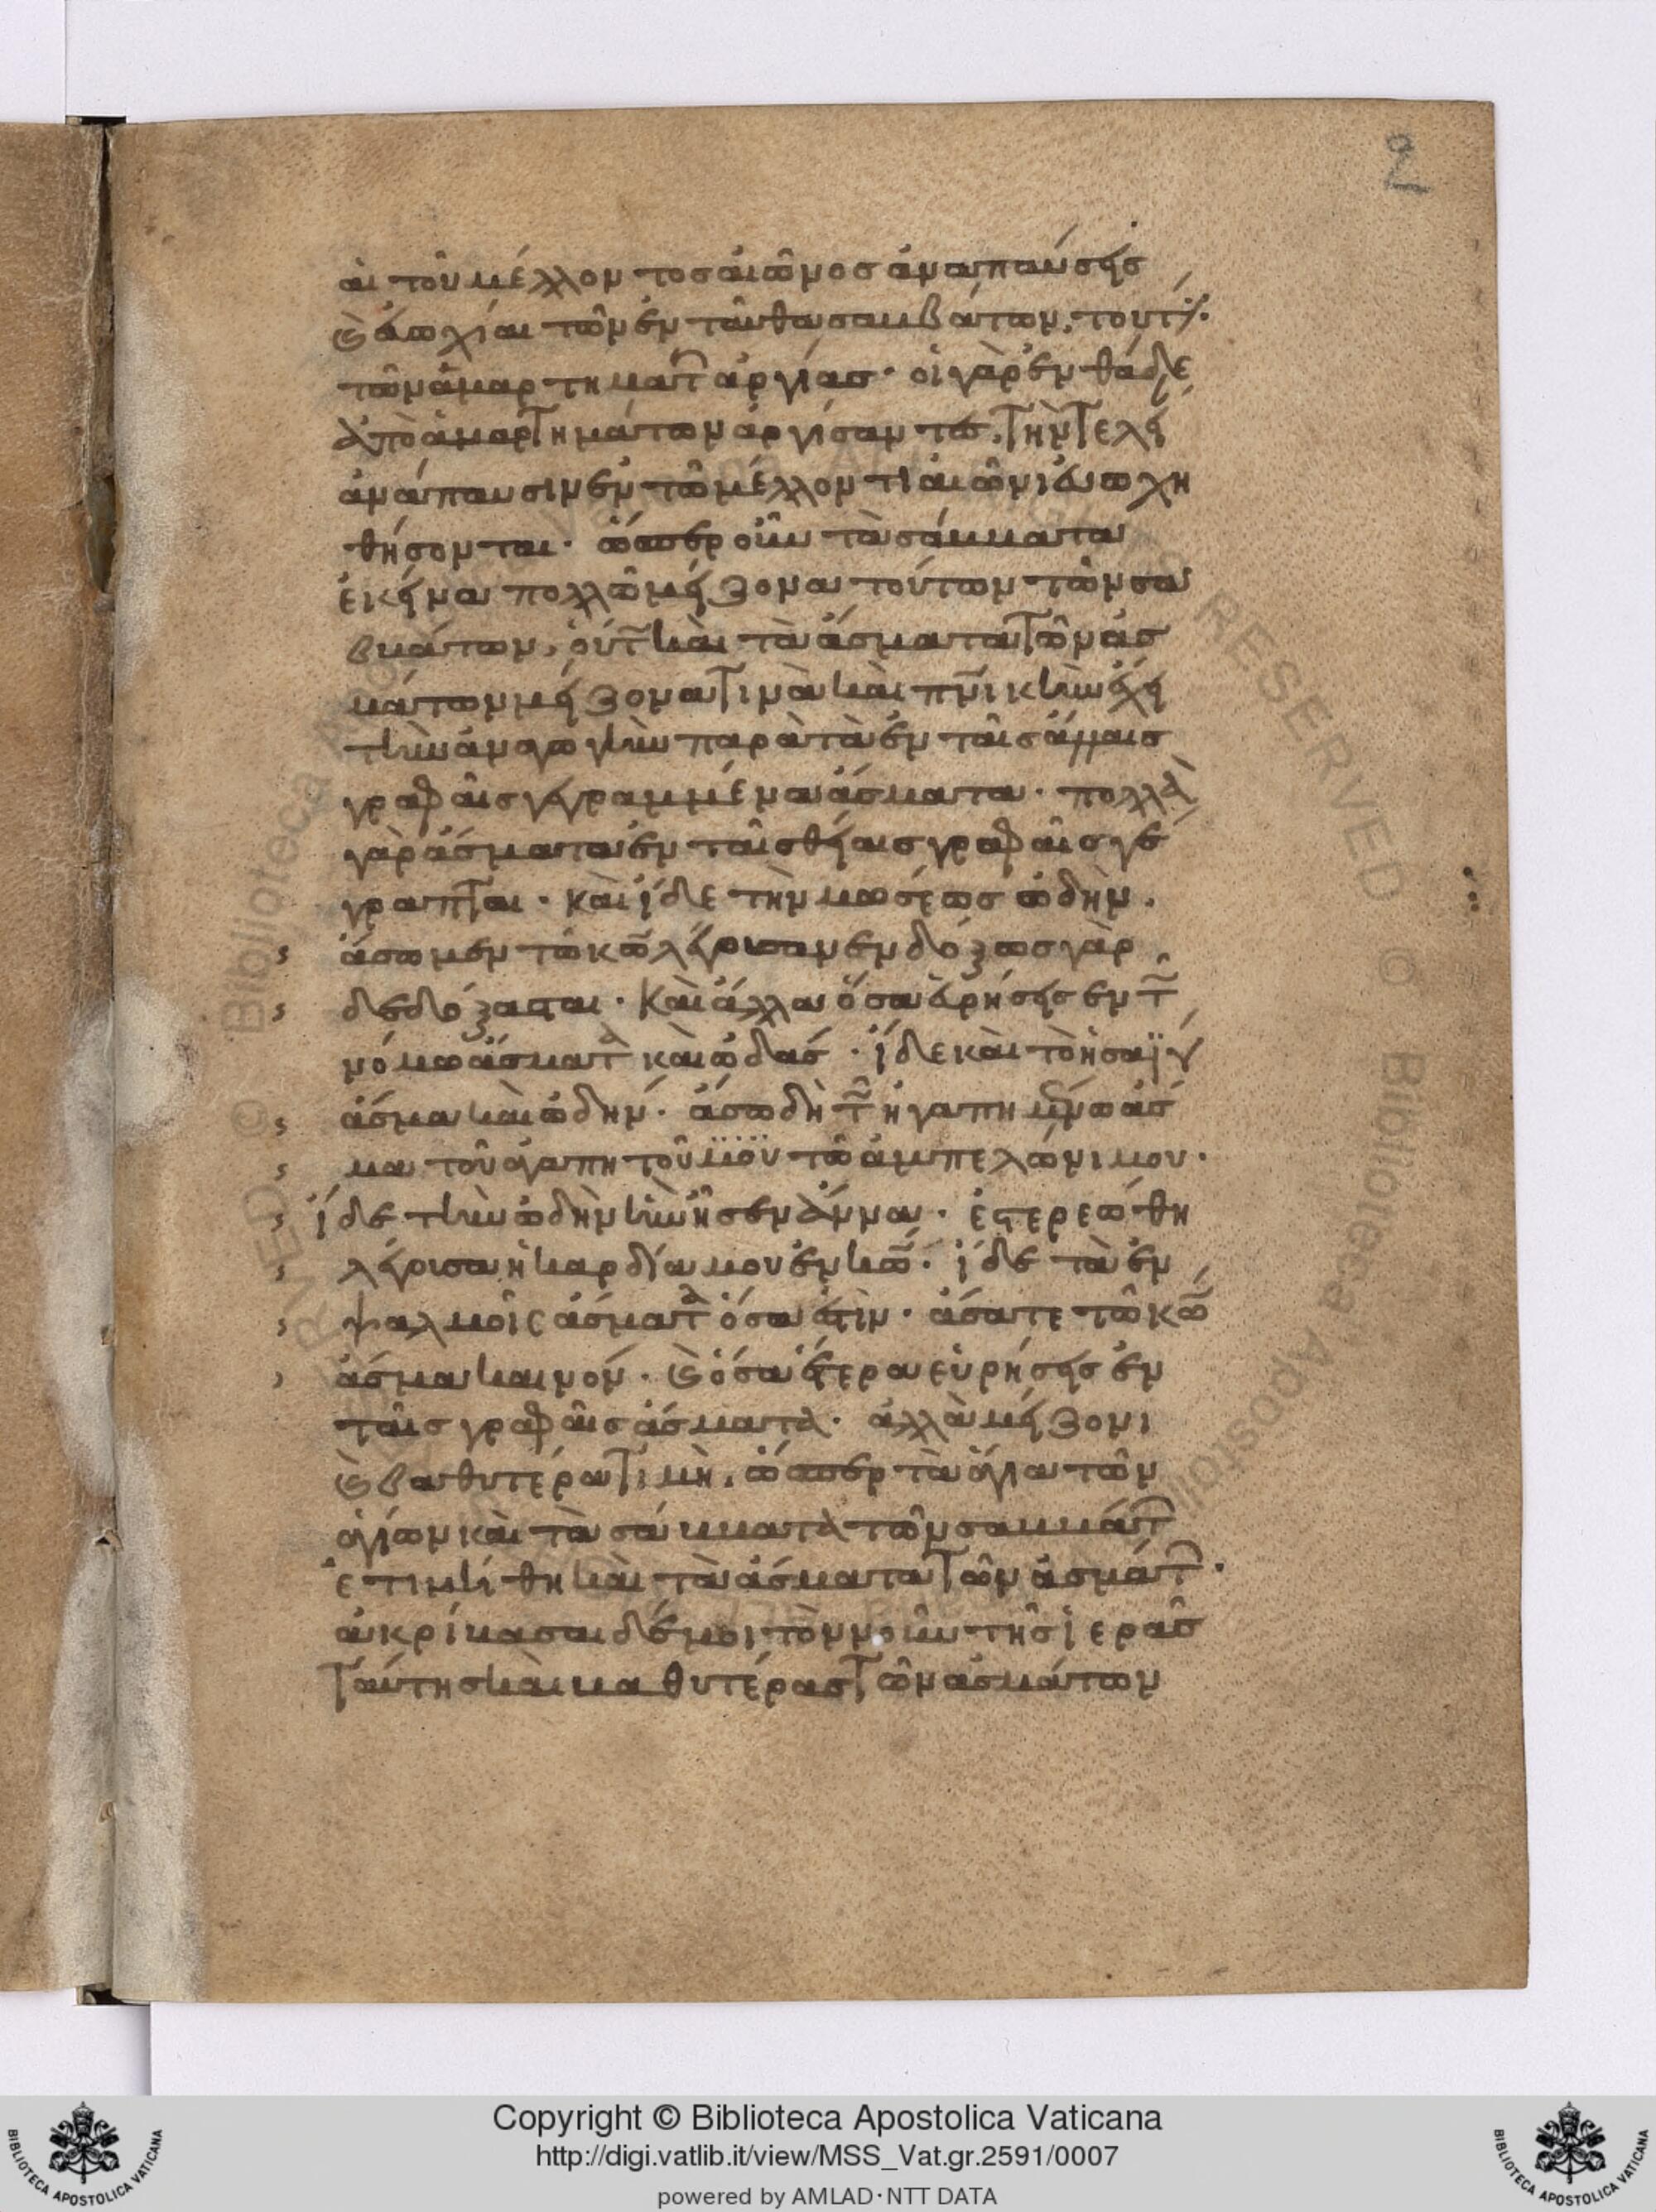 2
αἱ τοῦ μέλλοντος αἰῶνος ἀναπαύσεις
διάδοχοι τῶν ἐνταῦθα σαββάτων, τουτέστι
τῶν ἁμαρτηματ ἀργίας· οἱ γὰρ ἐνθάδε
ἀπὸ ἁμαρτημάτων ἀργίσαντες, τὴν τελεί
ἀνάπαυσιν ἐν τῶ μέλλοντι αἰῶνι
θήσονται· ὥσπερ οὖν τὰ σάββατα
ἐκεῖνα πολλῶ μείζονα τούτων τῶν σα
βάτων, οὕτ καὶ τὰ ἄσματα τῶν ἀσ
μάτων μείζονα τιμὰ καὶ πνικὴν ἔχει
τὴν ἀναγωγὴν παρὰ τὰ ἐν ταῖς ἄλλαις
γραφαῖς γεγραμμένα ἄσματα· πολλὰ
γὰρ ἄσματα ἐν ταῖς θείαις γραφαῖς γέ
γραπται· καὶ ἴδε τὴν μωσέως ὠδὴν.
ἄσωμεν τῶ κω λέγουσαν ἐνδόξως γὰρ
δεδόξασται· Καὶ ἄλλα ὅσα εὑρήσεις ἐν τ
νόμω ἄσματ καὶ ὠδάς· ἴδε καὶ τὸ ἡσαΐου
ἄσμα καὶ ὠδήν· ἄσω δὴ τ ἠγαπημένω ἄσ
μα τοῦ ἀγαπητοῦ μου τῶ ἀμπελῶνι μου·
ἴδε τὴν ὠδὴν ἣν ἦσεν ἄννα· ἐστερεώθη
λέγουσα ἡ καρδία μου ἐν κω· ἴδε τὰ ἐν
ψαλμοῖς ἄσματα ὅσα ἐστὶν· ἄσατε τῶ κω
ἄσμα καινόν· καὶ ὅσα ἕτερα εὑρήσεις ἐν
ταῖς γραφαῖς ἄσματα· ἀλλὰ μείζονι
καὶ βαθυτέρα τιμὴ, ὥσπερ τὰ ἅγια τῶν
ἁγίων καὶ τὰ σάββατα τῶν σαββάτ
ἐτιμήθη καὶ τὰ ἄσματα τῶν ἀσμάτ·
τὸν νοῦν τῆς ἱερᾶς
ταύτης καὶ βαθυτέρας τῶν ἀσμάτων
Copyright © Biblioteca Apostolica Vaticana
http://digi.vatlib.it/view/MSS_Vat.gr.2591/0007
powered by AMLAD·NTT DATA
BIBLIOTECA APOSTOLICA VATICANA
BIBLIOTECA APOSTOLICA VATICANA